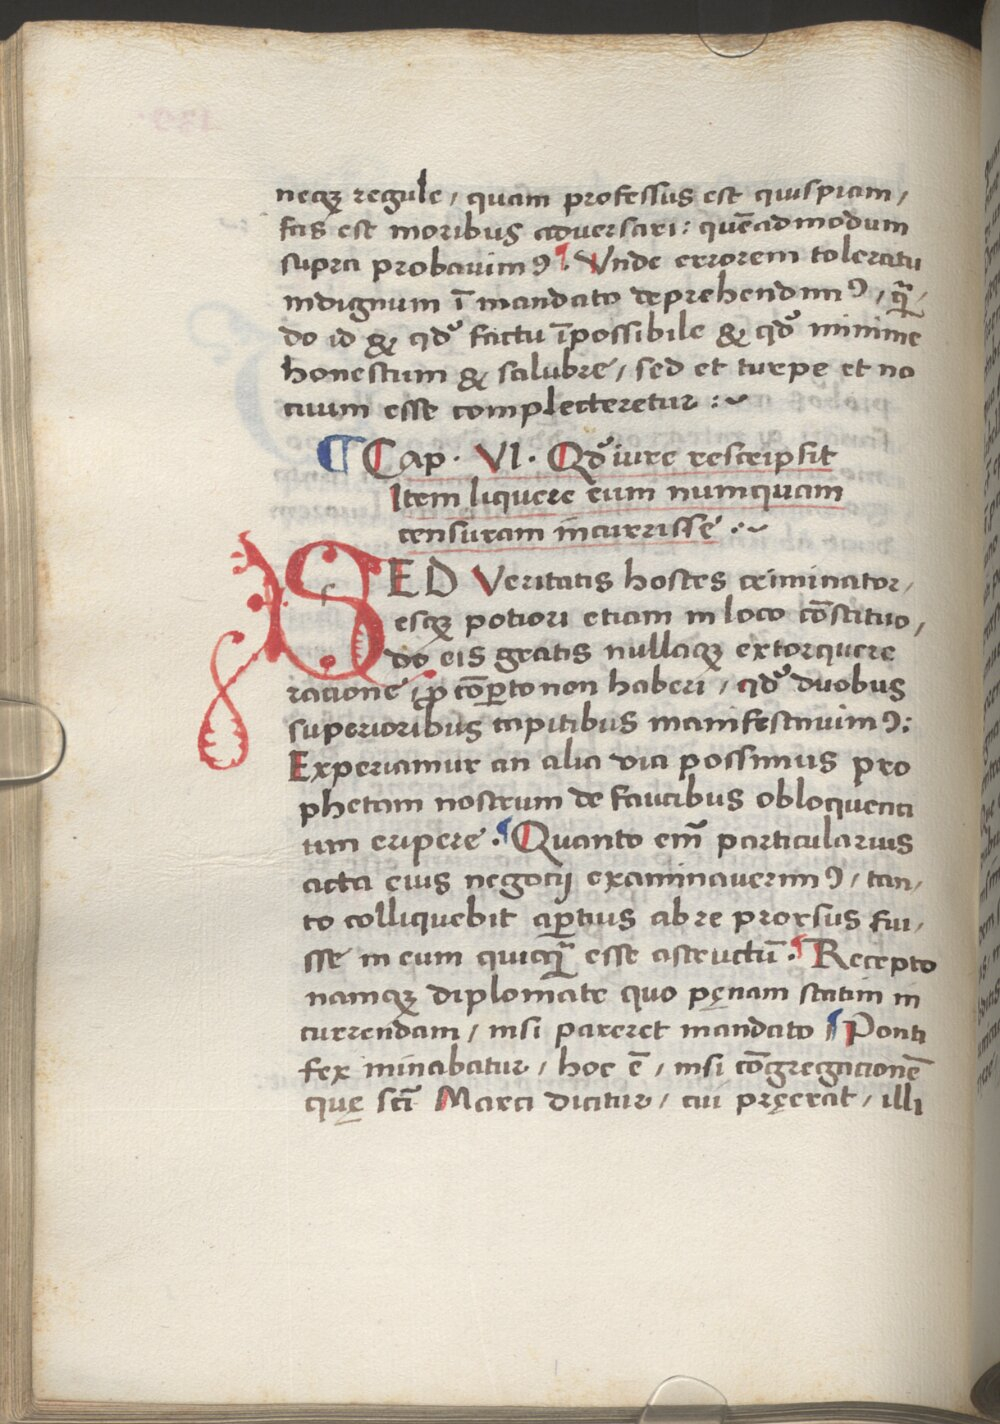 neqꝫ regule / quam professus est quispiam /
fas est moribus aduersari : quēadmodum
supra probauimꝰ ¶. Vnde errorem toleratu
indignum ī mandato deprehendimꝰ / quā /
do id & qd̛ factu īpossibile & qd̛ minime
honestum & salubre / sed et turpe et no
ciuum esse complecteretur :~
¶ Cap . VI . Qd̛ iure rescripsit
Item liquere eum numquam
censuram incurrisse .~
SED Veritatis hostes criminator /
esqꝫ potiori etiam in loco cōstituo /
do eis gratis nullaqꝫ extorquere
racione ꝓ cōꝑto non haberi / qd̛ duobus
superioribus capitibus manifestauimꝰ :
Experiamur an alia via possimus pro
phetam nostrum de faucibus obloquenci
um eripere . ¶ Quanto em̄ particularius
acta eius negocij examinauerimꝰ / tan /
to colliquebit aꝑtius ab re prorsus fui /
sse in eum quicquā esse astructū . ¶ Recepto
namqꝫ diplomate quo pęnam statim in
currendam / nisi pareret mandato ¶ Ponti
fex minabatur / hoc ē / nisi cōgregacionē
quę scī Marci dicitur / cui pręerat / illi